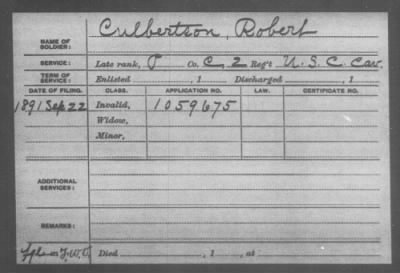 NAME OF SOLDIER: Culbertson, Robert
SERVICE: Late rank, P Co. C, 2 Reg't U. S. C. Cav.
TERM OF SERVICE: Enlisted , 1 Discharged , 1
DATE OF FILING. CLASS. APPLICATION NO. LAW. CERTIFICATE NO.
1891 Sep 22 Invalid, 1059675
Widow,
Minor,
ADDITIONAL SERVICES:
REMARKS:
Died , 1 , at